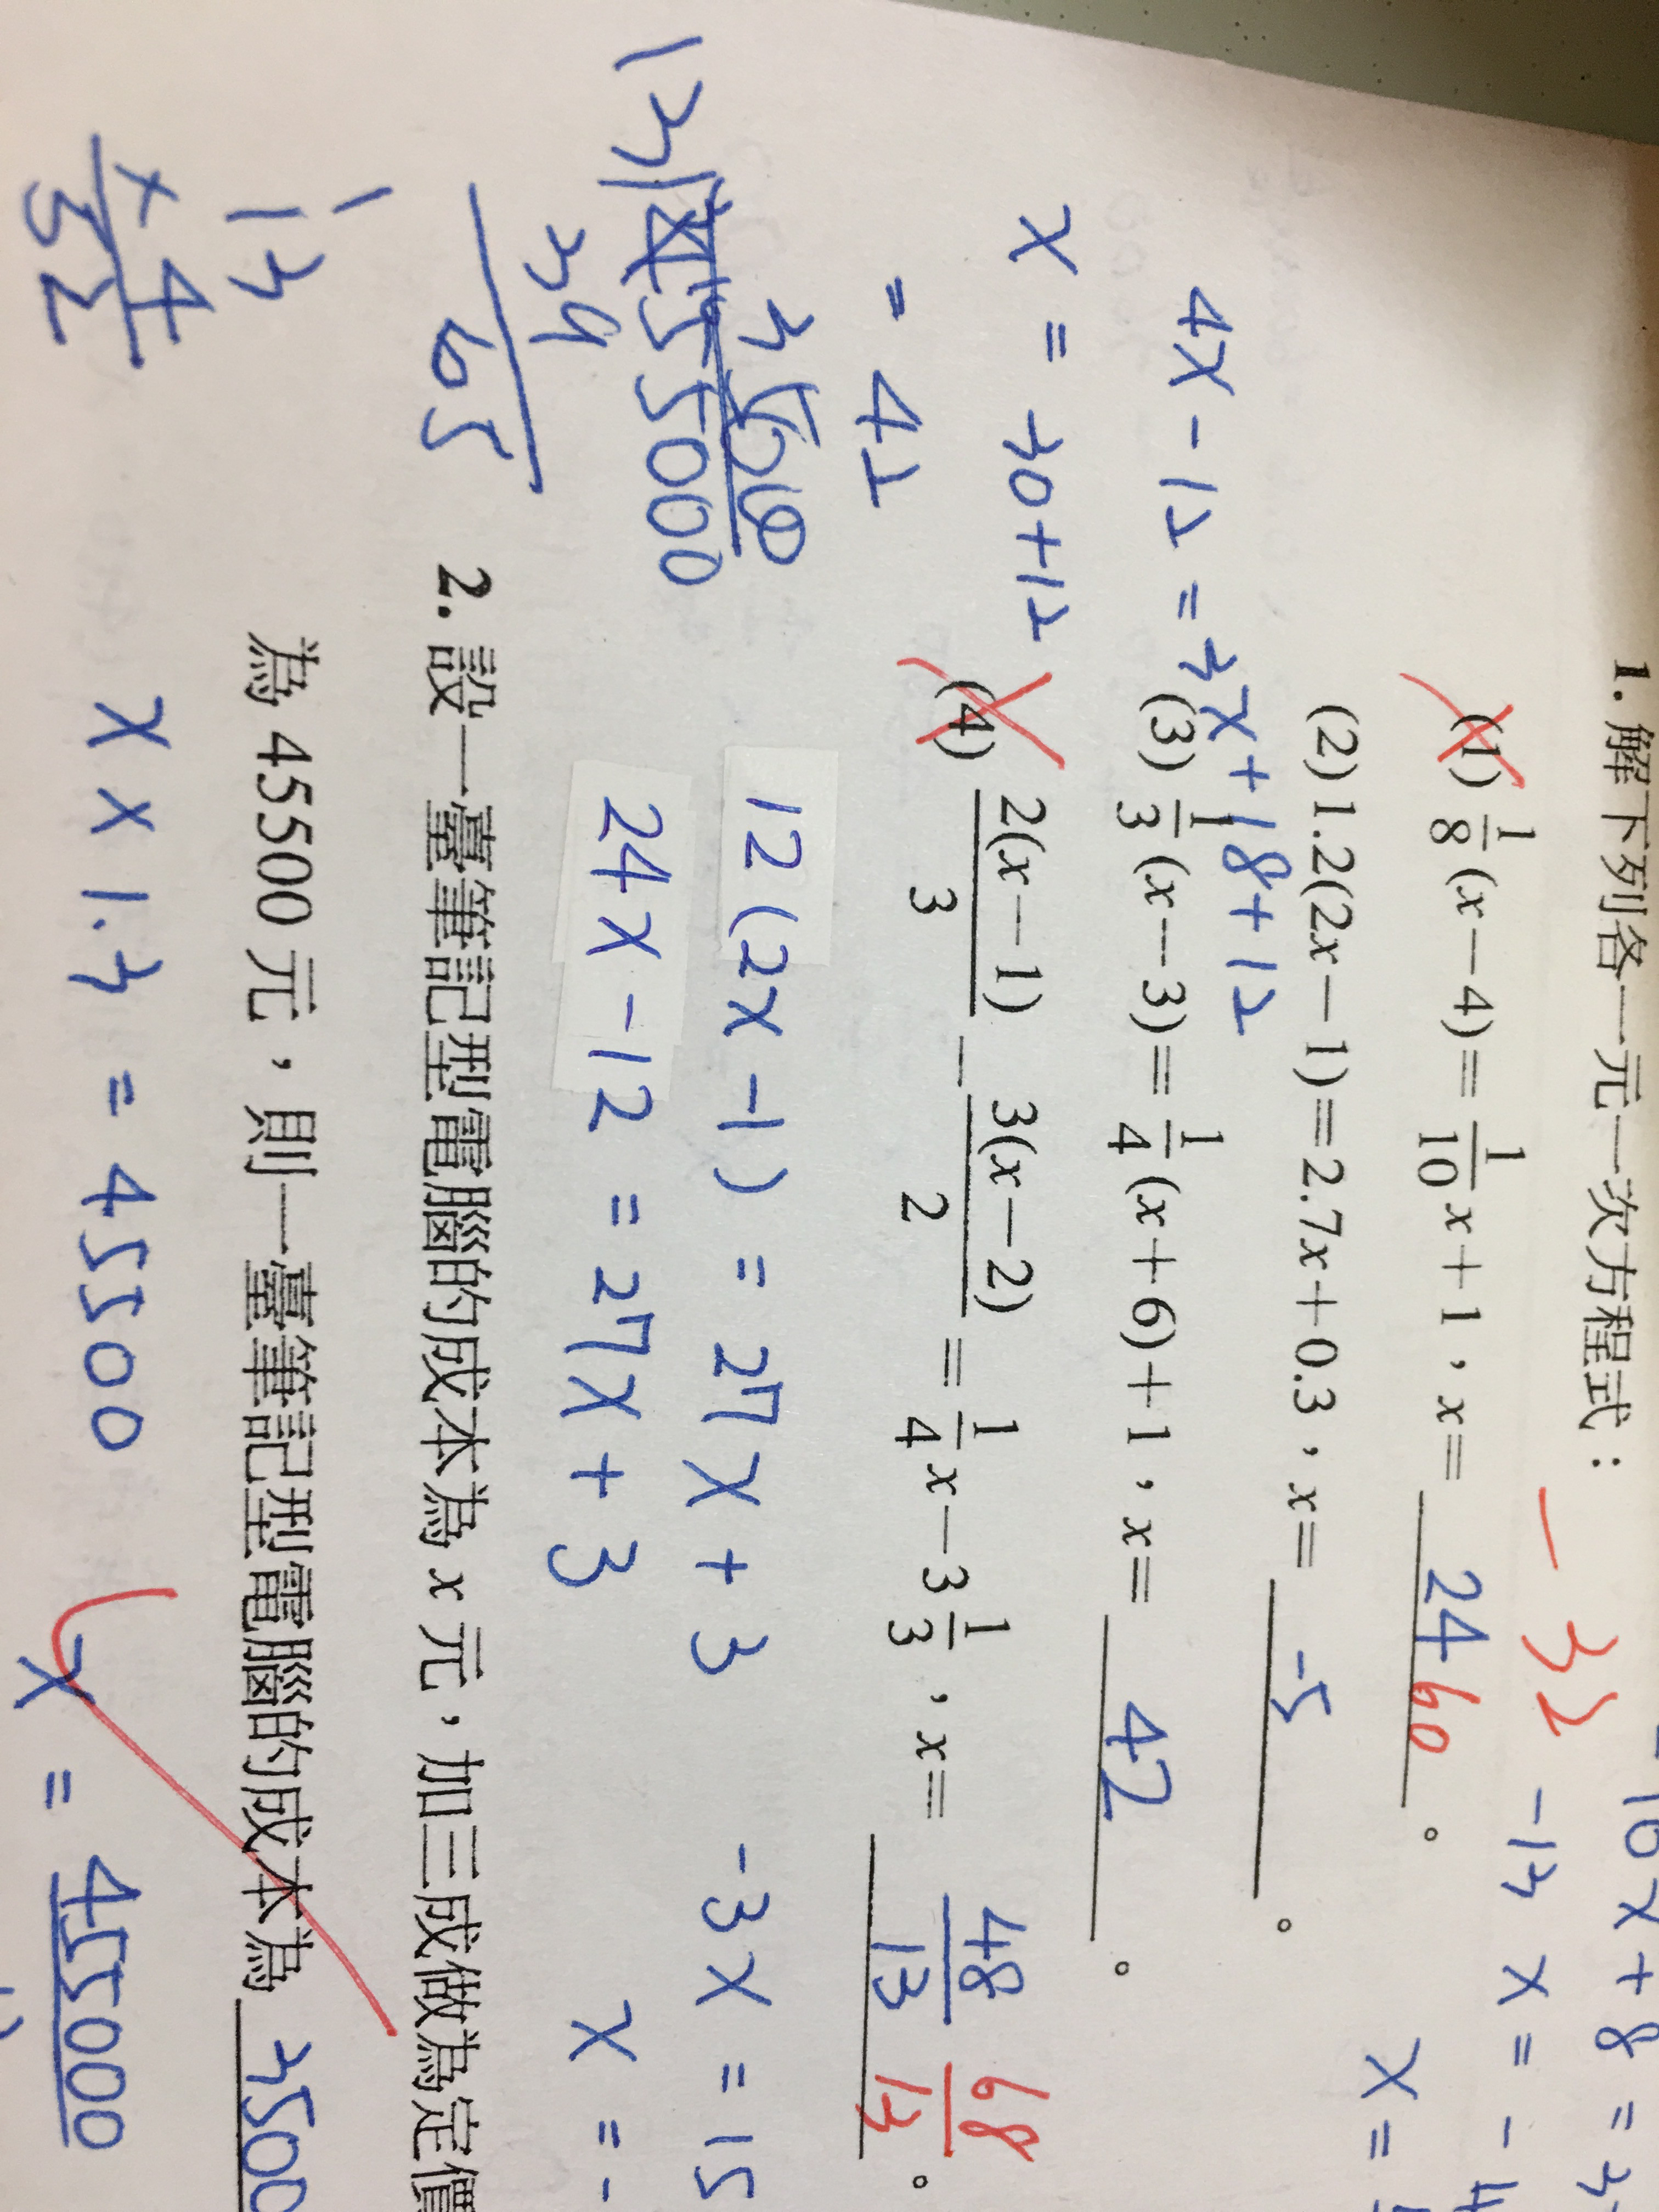 1. 解下列各一元一次方程式：
-32
-16x+8=3
-13x=-4
x=
(1) 1/8(x-4)=1/10x+1，x= 24 60 。
(2) 1.2(2x-1)=2.7x+0.3，x= -5 。
4x-12=3x+18+12
(3) 1/3(x-3)=1/4(x+6)+1，x= 42 。
x=30+12
=42
(4) 2(x-1)/3-3(x-2)/2=1/4x-3 1/3，x= 48/13 68/13 。
12(2x-1)=27x+3
-3x=15
24x-12=27x+3
x=-
13
455000
39
65
2. 設一臺筆記型電腦的成本為x元，加三成做為定價
為45500元，則一臺筆記型電腦的成本為 3500
x×1.3=45500
x=455000
13
×4
52